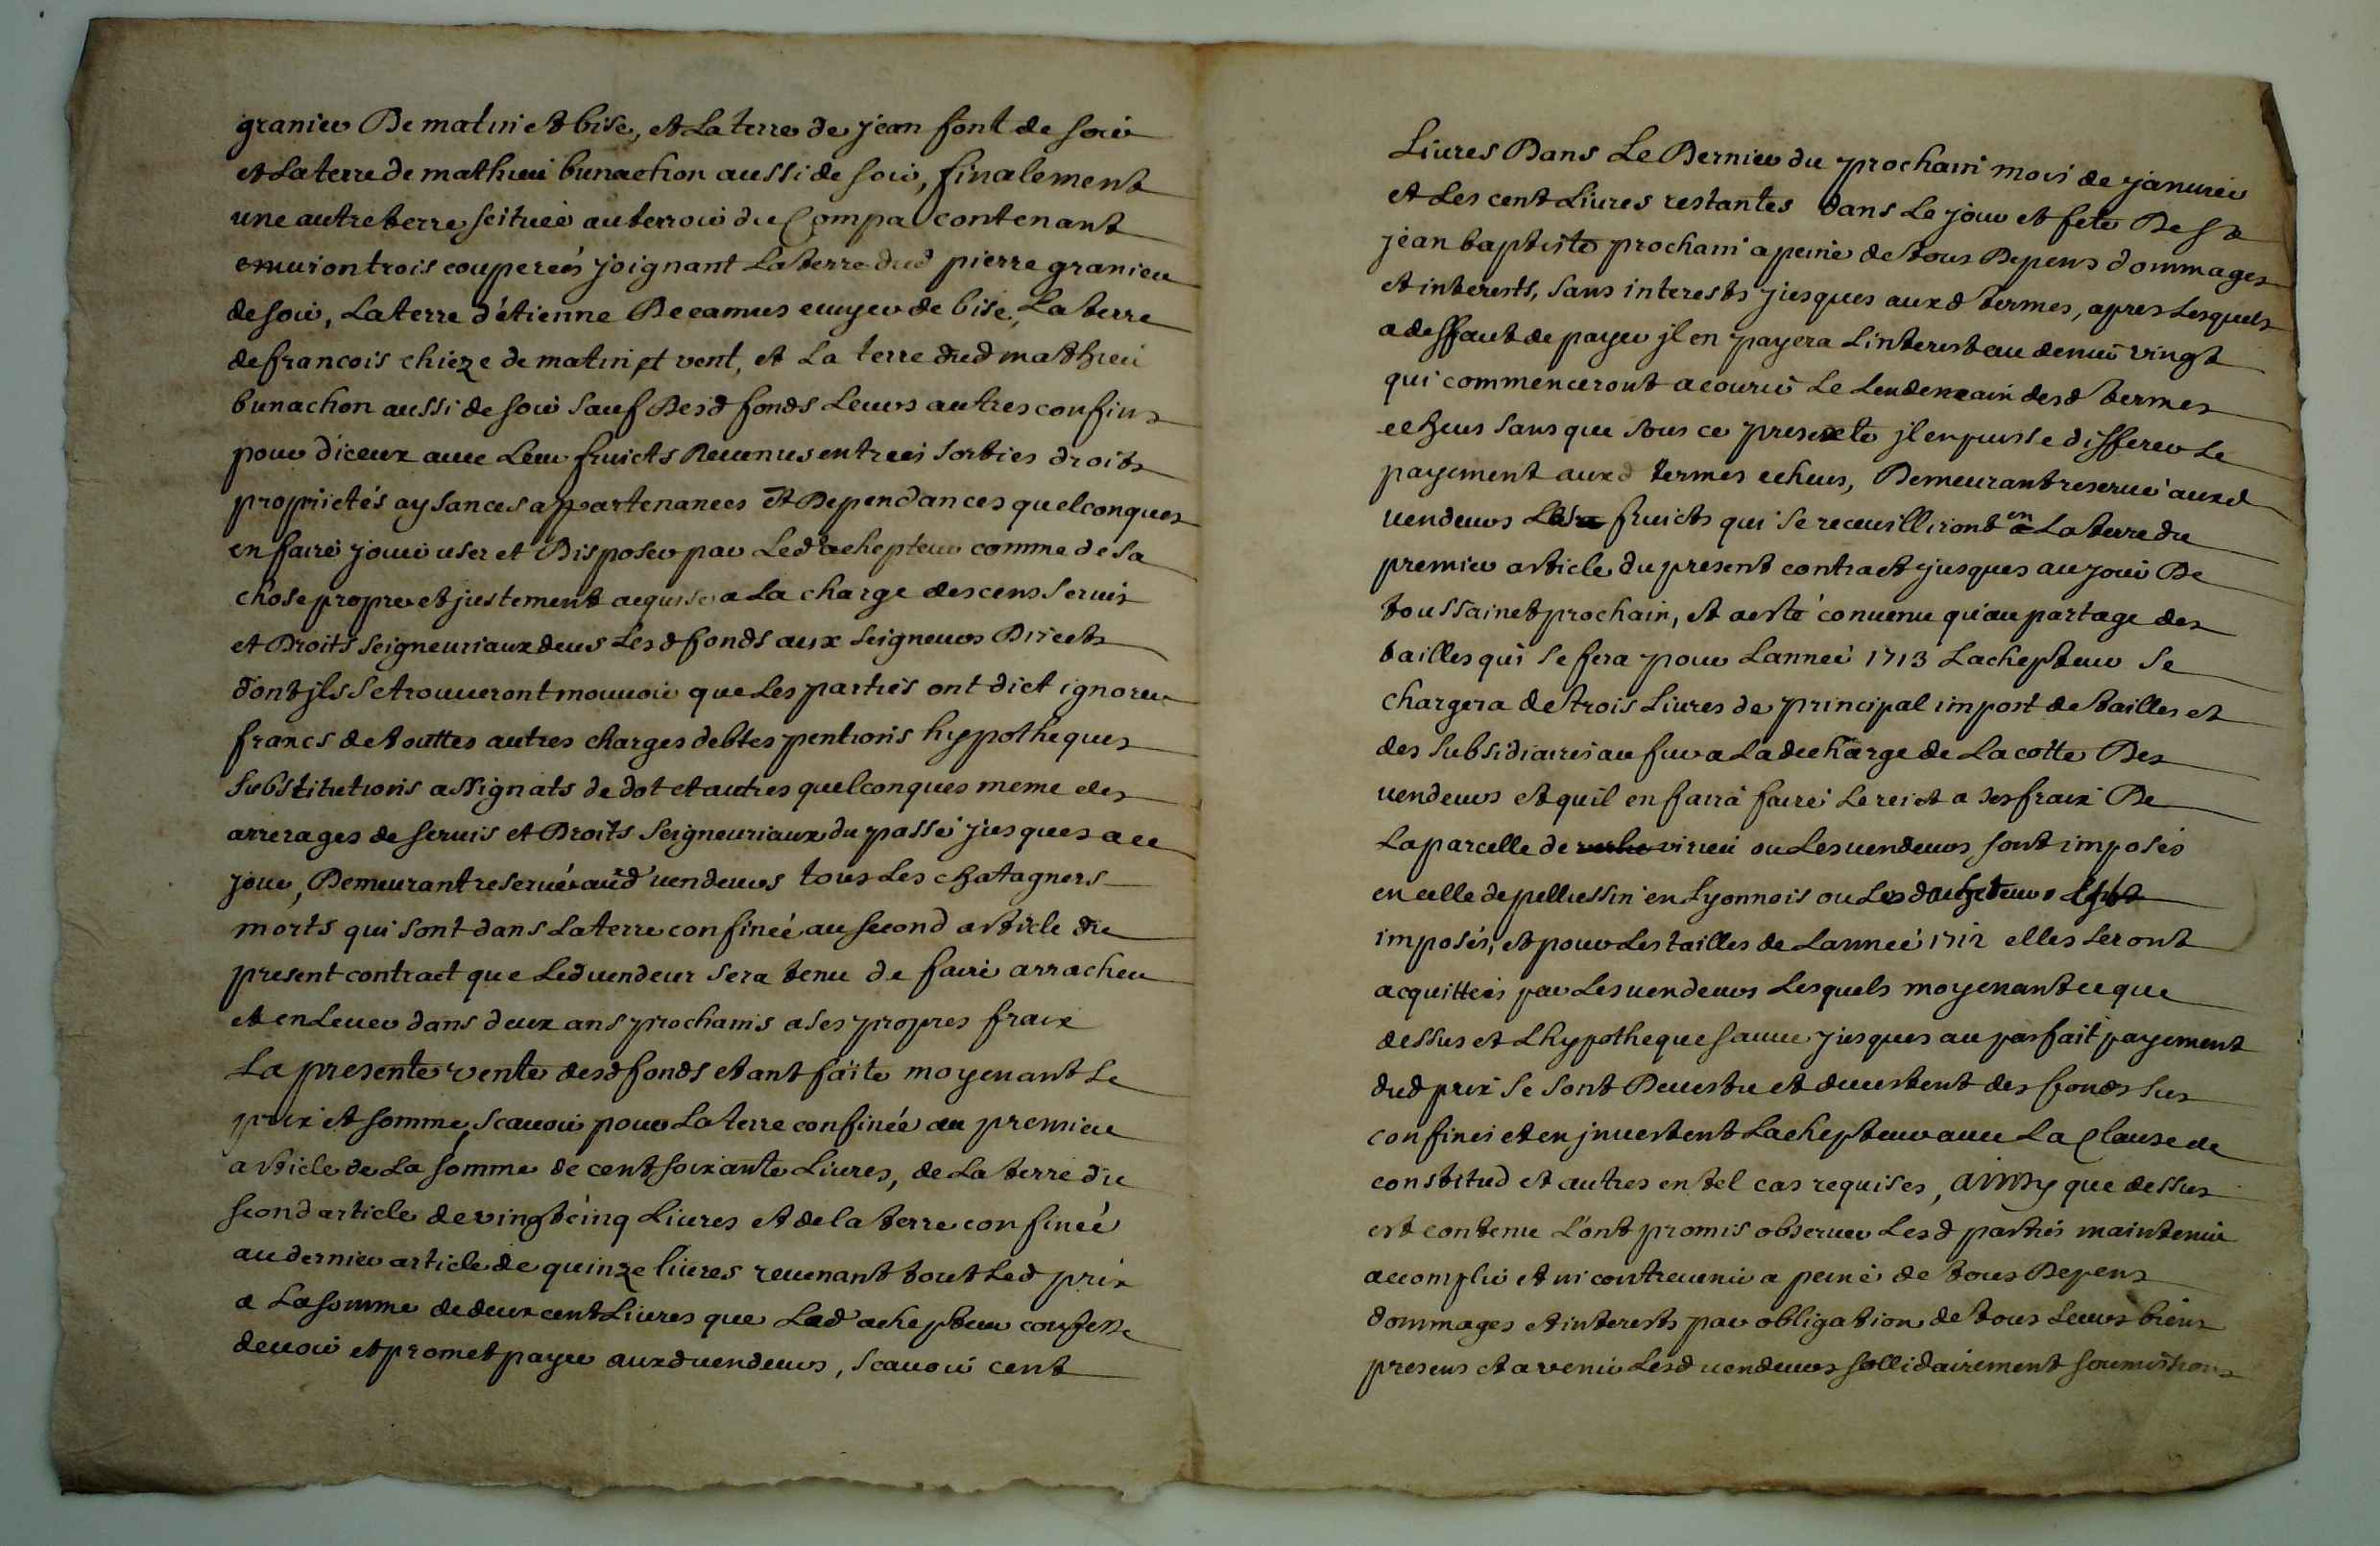 granier De matin et bise, et La terre de jean font de soir
et La terre de mathieu bunachon aussi de soir, finalement
une autre terre scituée au terroir du Compa contenant
environ trois couperées joignant La terre dud pierre granier
de soir, La terre d'étienne De camus euyer de bise, La terre
de francois chieze de matin et vent, et La terre dud mathieu
bunachon aussi de soir sauf Desd fonds Leurs autres confins
pour d'iceux avec Leur fruicts Revenus entrées sorties droits
proprietés aysances appartenances et Dependances quelconques
en faire jouir user et Disposer par Led achepteur comme de sa
chose propre et justement acquise a La charge des cens servis
et Droits seigneuriaux deus Lesd fonds aux seigneurs Directs
dont jls se trouveront mouvoir que Les parties ont dict ignorer
francs de touttes autres charges debtes pentions hypotheques
substitutions assignats de dot et autres quelconques meme des
arrerages de servis et Droits seigneuriaux du passé jusques a ce
jour, Demeurant reservé aud vendeurs tous Les chatagners
morts qui sont dans La terre confinée au second article du
present contract que Led vendeur sera tenu de faire arracher
et enlever dans deux ans prochains a ses propres fraix
La presente vente desd fonds etant faite moyenant Le
prix et somme, scavoir pour La terre confinée au premier
article de La somme de cent soixante Livres, de La terre du
second article de vingt cinq Livres et de la terre confinée
au dernier article de quinze livres revenant tout Led prix
a La somme de deux cent Livres que Led achepteur confesse
devoir et promet payer auxd vendeurs, scavoir cent
Livres Dans Le Dernier du prochain mois de janvier
et Les cent Livres restantes dans Le jour et fete De st
jean baptiste prochain a peine de tous Depens dommages
et interests, sans interests jusques auxd termes, apres Lesquels
a deffaut de payer jl en payera L'interest au denier vingt
qui commenceront a courir Le Lendemain desd termes
echeus sans que sous ce prexete jl en puisse differer Le
payement auxd termes echeus, Demeurant reservé auxd
vendeurs Les fruicts qui se receuilliront en La terre du
premier article du present contract jusques au jour De
toussainct prochain, et a esté convenu qu'au partage des
tailles qui se fera pour L'année 1713 L'achepteur se
chargera de trois Livres de principal impost de tailles et
des subsidiaires au fur a La decharge de La cotte Des
vendeurs et qu'il en faira faire Le reiet a ses fraix De
La parcelle de virieu ou Les vendeurs sont imposés
en celle de pellussin en Lyonnois ou Led achepteur
imposés, et pour Les tailles de L'année 1712 elles seront
acquittées par Les vendeurs Lesquels moyenant ce que
dessus et L'hypotheque sauve jusques au parfait payement
dud prix se sont Devestu et devestent des fonds sus
confinés et en jnvestent L'achepteur avec La Clause de
constitud et autres en tel cas requises, ainsy que dessus
est contenu L'ont promis observer Lesd parties maintenir
accomplir et ni contrevenir a peine de tous Depens
dommages et interests par obligation de tous Leurs biens
presens et avenir Lesd vendeurs sollidairement soumissions